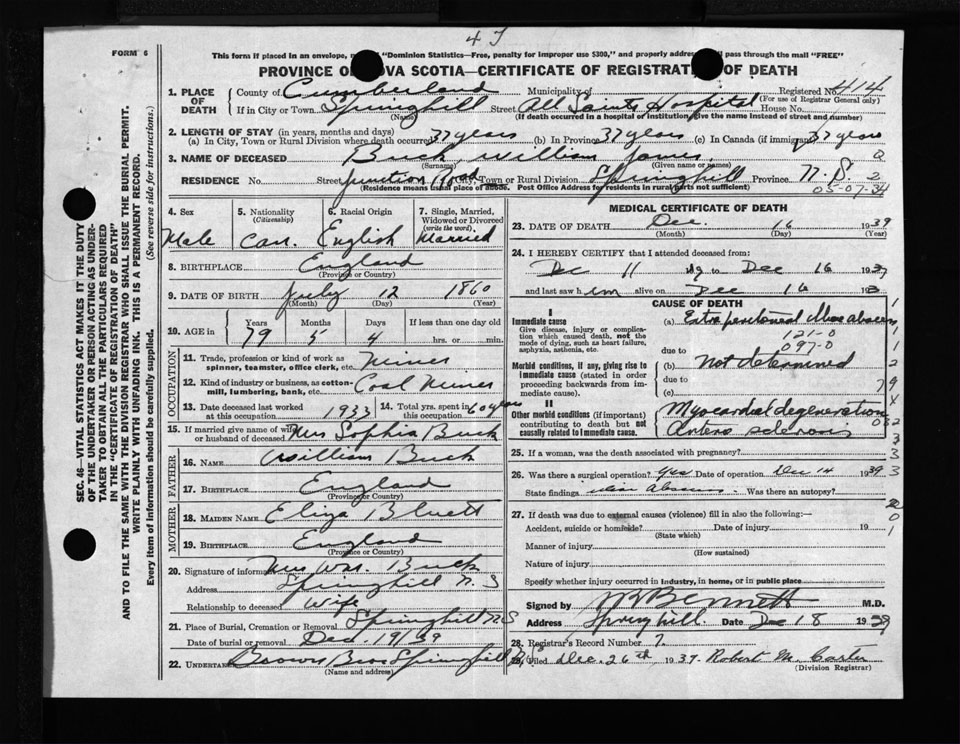 4 J
FORM 6
This form if placed in an envelope, "Dominion Statistics—Free, penalty for improper use $300," and properly address pass through the mail "FREE"
PROVINCE OF NOVA SCOTIA—CERTIFICATE OF REGISTRATION OF DEATH
1. PLACE OF DEATH
County of Cumberland Municipality of Registered No. 414
(For use of Registrar General only)
If in City or Town Springhill Street All Saints Hospital House No.
(Name) (If death occurred in a hospital or institution, give the name instead of street and number)
2. LENGTH OF STAY (in years, months and days)
(a) In City, Town or Rural Division where death occurred 37 years (b) In Province 37 years (c) In Canada (if immigrant) 37 years
3. NAME OF DECEASED Buck, William James
(Surname) (Given name or names)
RESIDENCE No. Street Junction Road City, Town or Rural Division Springhill Province N.S. 2
(Residence means usual place of abode. Post Office Address for residents in rural parts not sufficient) 05-07-34
4. Sex Male
5. Nationality (Citizenship) Can.
6. Racial Origin English
7. Single, Married, Widowed or Divorced (write the word) Married
8. BIRTHPLACE England
(Province or Country)
9. DATE OF BIRTH July 12 1860
(Month) (Day) (Year)
10. AGE in Years Months Days If less than one day old
79 5 4 hrs. or min.
OCCUPATION
11. Trade, profession or kind of work as spinner, teamster, office clerk, etc. Miner
12. Kind of industry or business, as cotton-mill, lumbering, bank, etc. Coal Miner
13. Date deceased last worked at this occupation 1933
14. Total yrs. spent in this occupation 60 years
15. If married give name of wife or husband of deceased Mrs Sophia Buck
FATHER
16. NAME William Buck
17. BIRTHPLACE England
(Province or Country)
MOTHER
18. MAIDEN NAME Eliza Bluett
19. BIRTHPLACE England
(Province or Country)
20. Signature of informant Mrs Wm. Buck
Address Springhill N.S
Relationship to deceased Wife
21. Place of Burial, Cremation or Removal Springhill NS
Date of burial or removal Dec. 19/39
22. UNDERTAKER Browns Bros Springhill
(Name and address)
MEDICAL CERTIFICATE OF DEATH
23. DATE OF DEATH Dec. 16 1939
(Month) (Day) (Year)
24. I HEREBY CERTIFY that I attended deceased from:
Dec 11 39 to Dec 16 1939
and last saw him alive on Dec 16 193
CAUSE OF DEATH
I
Immediate cause
Give disease, injury or complication which caused death, not the mode of dying, such as heart failure, asphyxia, asthenia, etc.
(a) Extra peritoneal Iliac abscess
121-0
097-0
due to
Morbid conditions, if any, giving rise to Immediate cause (stated in order proceeding backwards from immediate cause).
(b) Not determined
due to
(c)
II
Other morbid conditions (if important) contributing to death but not causally related to Immediate cause.
Myocardial degeneration
Arterio sclerosis
25. If a woman, was the death associated with pregnancy?
26. Was there a surgical operation? Yes Date of operation Dec 14 1939
State findings Iliac Abscess. Was there an autopsy?
27. If death was due to external causes (violence) fill in also the following:—
Accident, suicide or homicide? Date of injury 19
(State which)
Manner of injury
(How sustained)
Nature of injury
Specify whether injury occurred in industry, in home, or in public place
Signed by Bennett M.D.
Address Springhill. Date Dec 18 1939
28. Registrar's Record Number 7.
29. Filed Dec. 26th 1939 Robert M. Carter
(Division Registrar)
SEC. 46—VITAL STATISTICS ACT MAKES IT THE DUTY
OF THE UNDERTAKER OR PERSON ACTING AS UNDER-
TAKER TO OBTAIN ALL THE PARTICULARS REQUIRED
IN THE "CERTIFICATE OF REGISTRATION OF DEATH"
AND TO FILE THE SAME WITH THE DIVISION REGISTRAR WHO SHALL ISSUE THE BURIAL PERMIT.
WRITE PLAINLY WITH UNFADING INK. THIS IS A PERMANENT RECORD.
Every item of information should be carefully supplied. (See reverse side for instructions.)